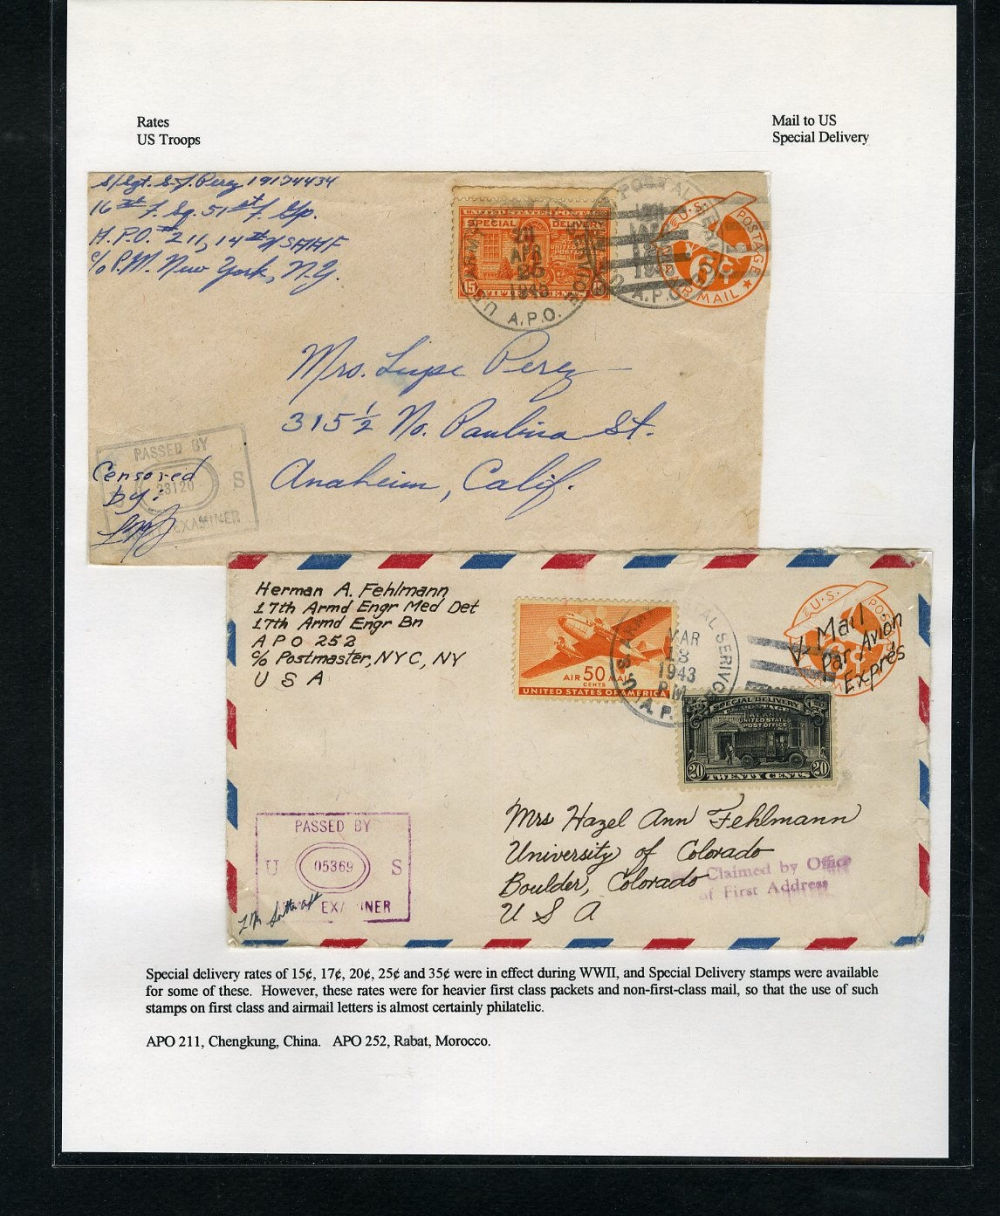 Rates
US Troops
Mail to US
Special Delivery
S/Sgt. S. J. Perez 19174434
16th F. Sq. 51st F. Gp.
A.P.O. #211, 14th
c/o P.M. New York, N.Y.
UNITED STATES POSTAGE
SPECIAL DELIVERY
15 FIFTEEN CENTS 15
APR
1945
U.S. ARMY SERVICE
A.P.O.
POSTAL
A.P.O.
U.S. POSTAGE
6¢
AIR MAIL
Mrs. Lupe Perez
315½ No. Paulina St.
Anaheim, Calif.
PASSED BY
Censored
by:
23120
S
EXAMINER
Herman A. Fehlmann
17th Armd Engr Med Det
17th Armd Engr Bn
APO 252
c/o Postmaster, NYC, NY
USA
AIR 50 MAIL
CENTS
UNITED STATES OF AMERICA
MAR
18
1943
PM
A.P.
U.S. POS
Mail
Par Avion
Exprés
SPECIAL DELIVERY
UNITED STATES
POST OFFICE
20 TWENTY CENTS 20
Mrs Hazel Ann Fehlmann
University of Colorado
Boulder, Colorado
USA
Claimed by Office
of First Address
PASSED BY
U 05369 S
EXAMINER
Special delivery rates of 15¢, 17¢, 20¢, 25¢ and 35¢ were in effect during WWII, and Special Delivery stamps were available
for some of these. However, these rates were for heavier first class packets and non-first-class mail, so that the use of such
stamps on first class and airmail letters is almost certainly philatelic.
APO 211, Chengkung, China. APO 252, Rabat, Morocco.